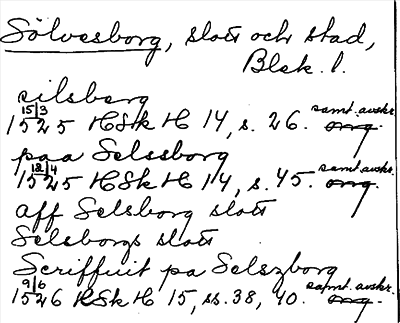 Sölvesborg, slott och stad,
Blek. l.
silsberg
15/3 1525 HSkH 14, s. 26. samt. avskr. orig.
paa Selssborg
18/4 1525 HSkH 14, s. 45. samt. avskr. orig.
aff Selsborg slott
Selsborgs slott
Scriffuit pa Selszborg
9/6 1526 HSkH 15, ss. 38, 40. samt. avskr. orig.